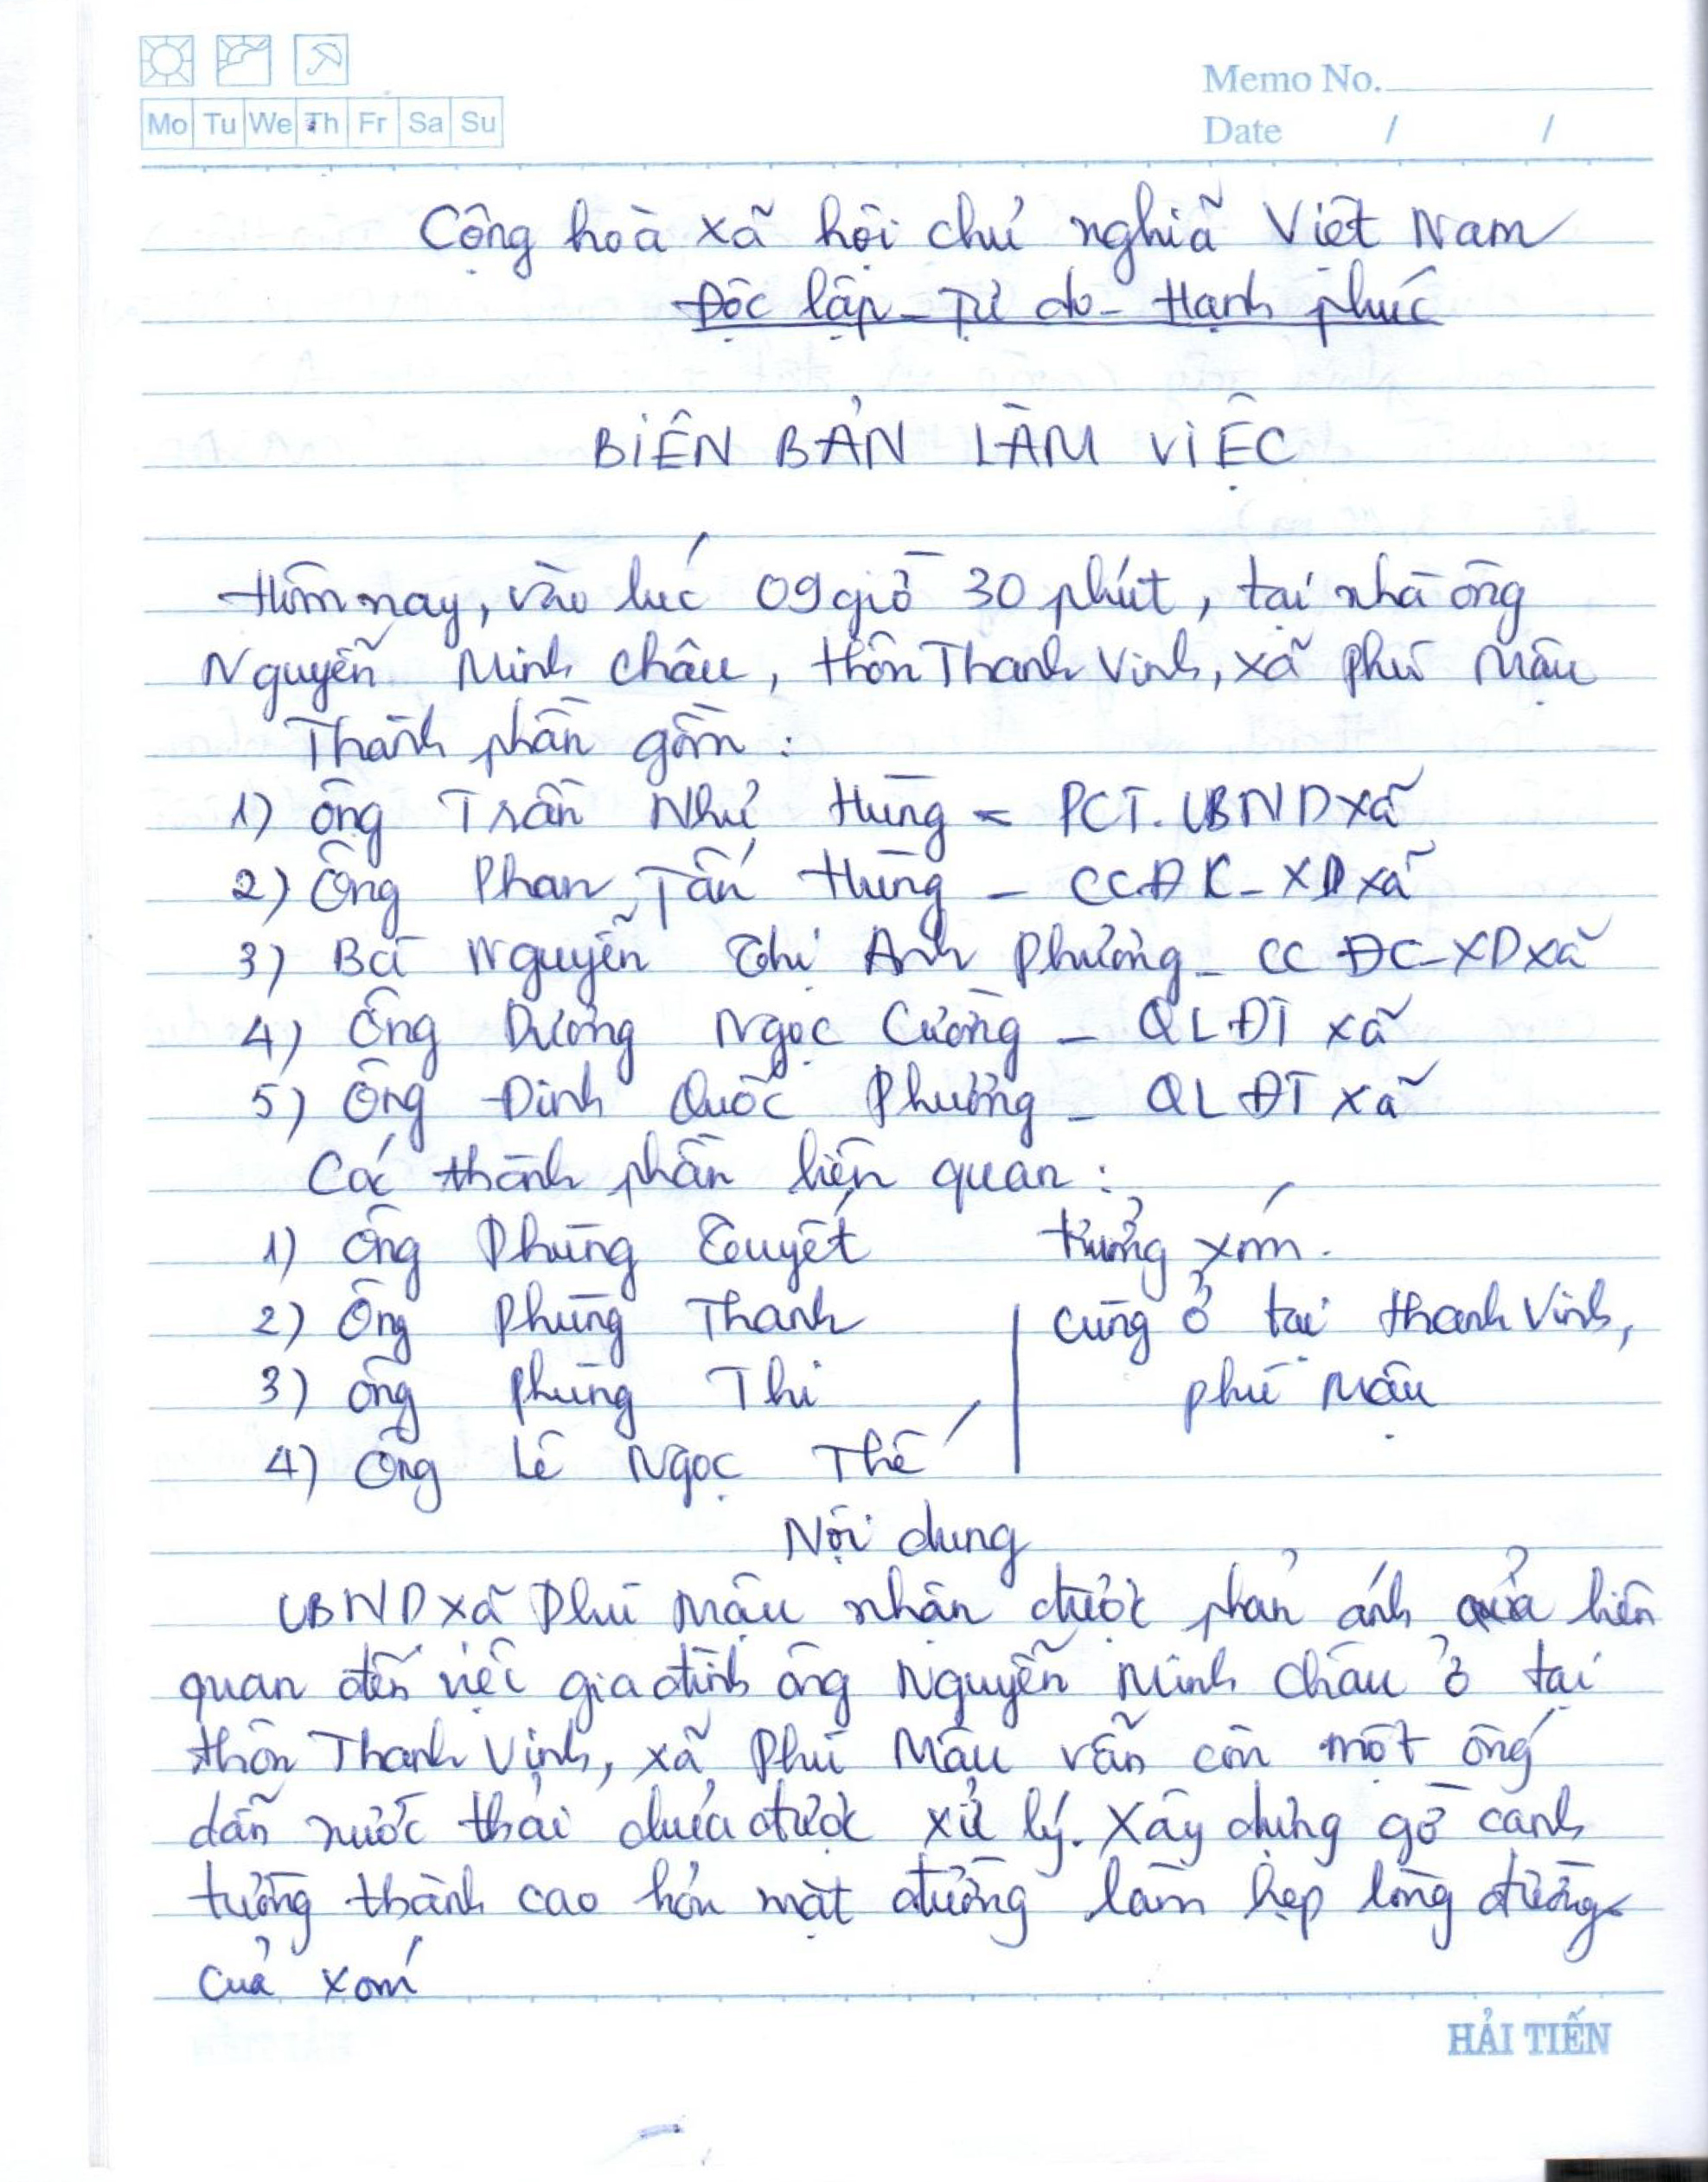 Mo Tu We Th Fr Sa Su
Memo No.
Date / /
Cộng hoà xã hội chủ nghĩa Việt Nam
Độc lập - Tự do - Hạnh phúc
BIÊN BẢN LÀM VIỆC
Hôm nay, vào lúc 09 giờ 30 phút, tại nhà ông
Nguyễn Minh Châu, thôn Thanh Vinh, xã Phú Mậu
Thành phần gồm:
1) Ông Trần Như Hùng - PCT. UBND xã
2) Ông Phan Tấn Hùng - CCĐC - XD xã
3) Bà Nguyễn Thị Anh Phương - CC ĐC - XD xã
4) Ông Dương Ngọc Cường - QLĐT xã
5) Ông Đinh Quốc Phương - QLĐT xã
Các thành phần liên quan:
1) Ông Phùng Tuyết trưởng xóm.
2) Ông Phùng Thanh cùng ở tại Thanh Vinh,
3) Ông Phùng Thi Phú Mậu
4) Ông Lê Ngọc Thế
Nội dung
UBND xã Phú Mậu nhận được phản ánh của liên
quan đến việc gia đình ông Nguyễn Minh Châu ở tại
thôn Thanh Vinh, xã Phú Mậu vẫn còn một ống
dẫn nước thải chưa được xử lý. Xây dựng gờ cạnh
tường thành cao hơn mặt đường làm hẹp lòng đường
của xóm
HẢI TIẾN